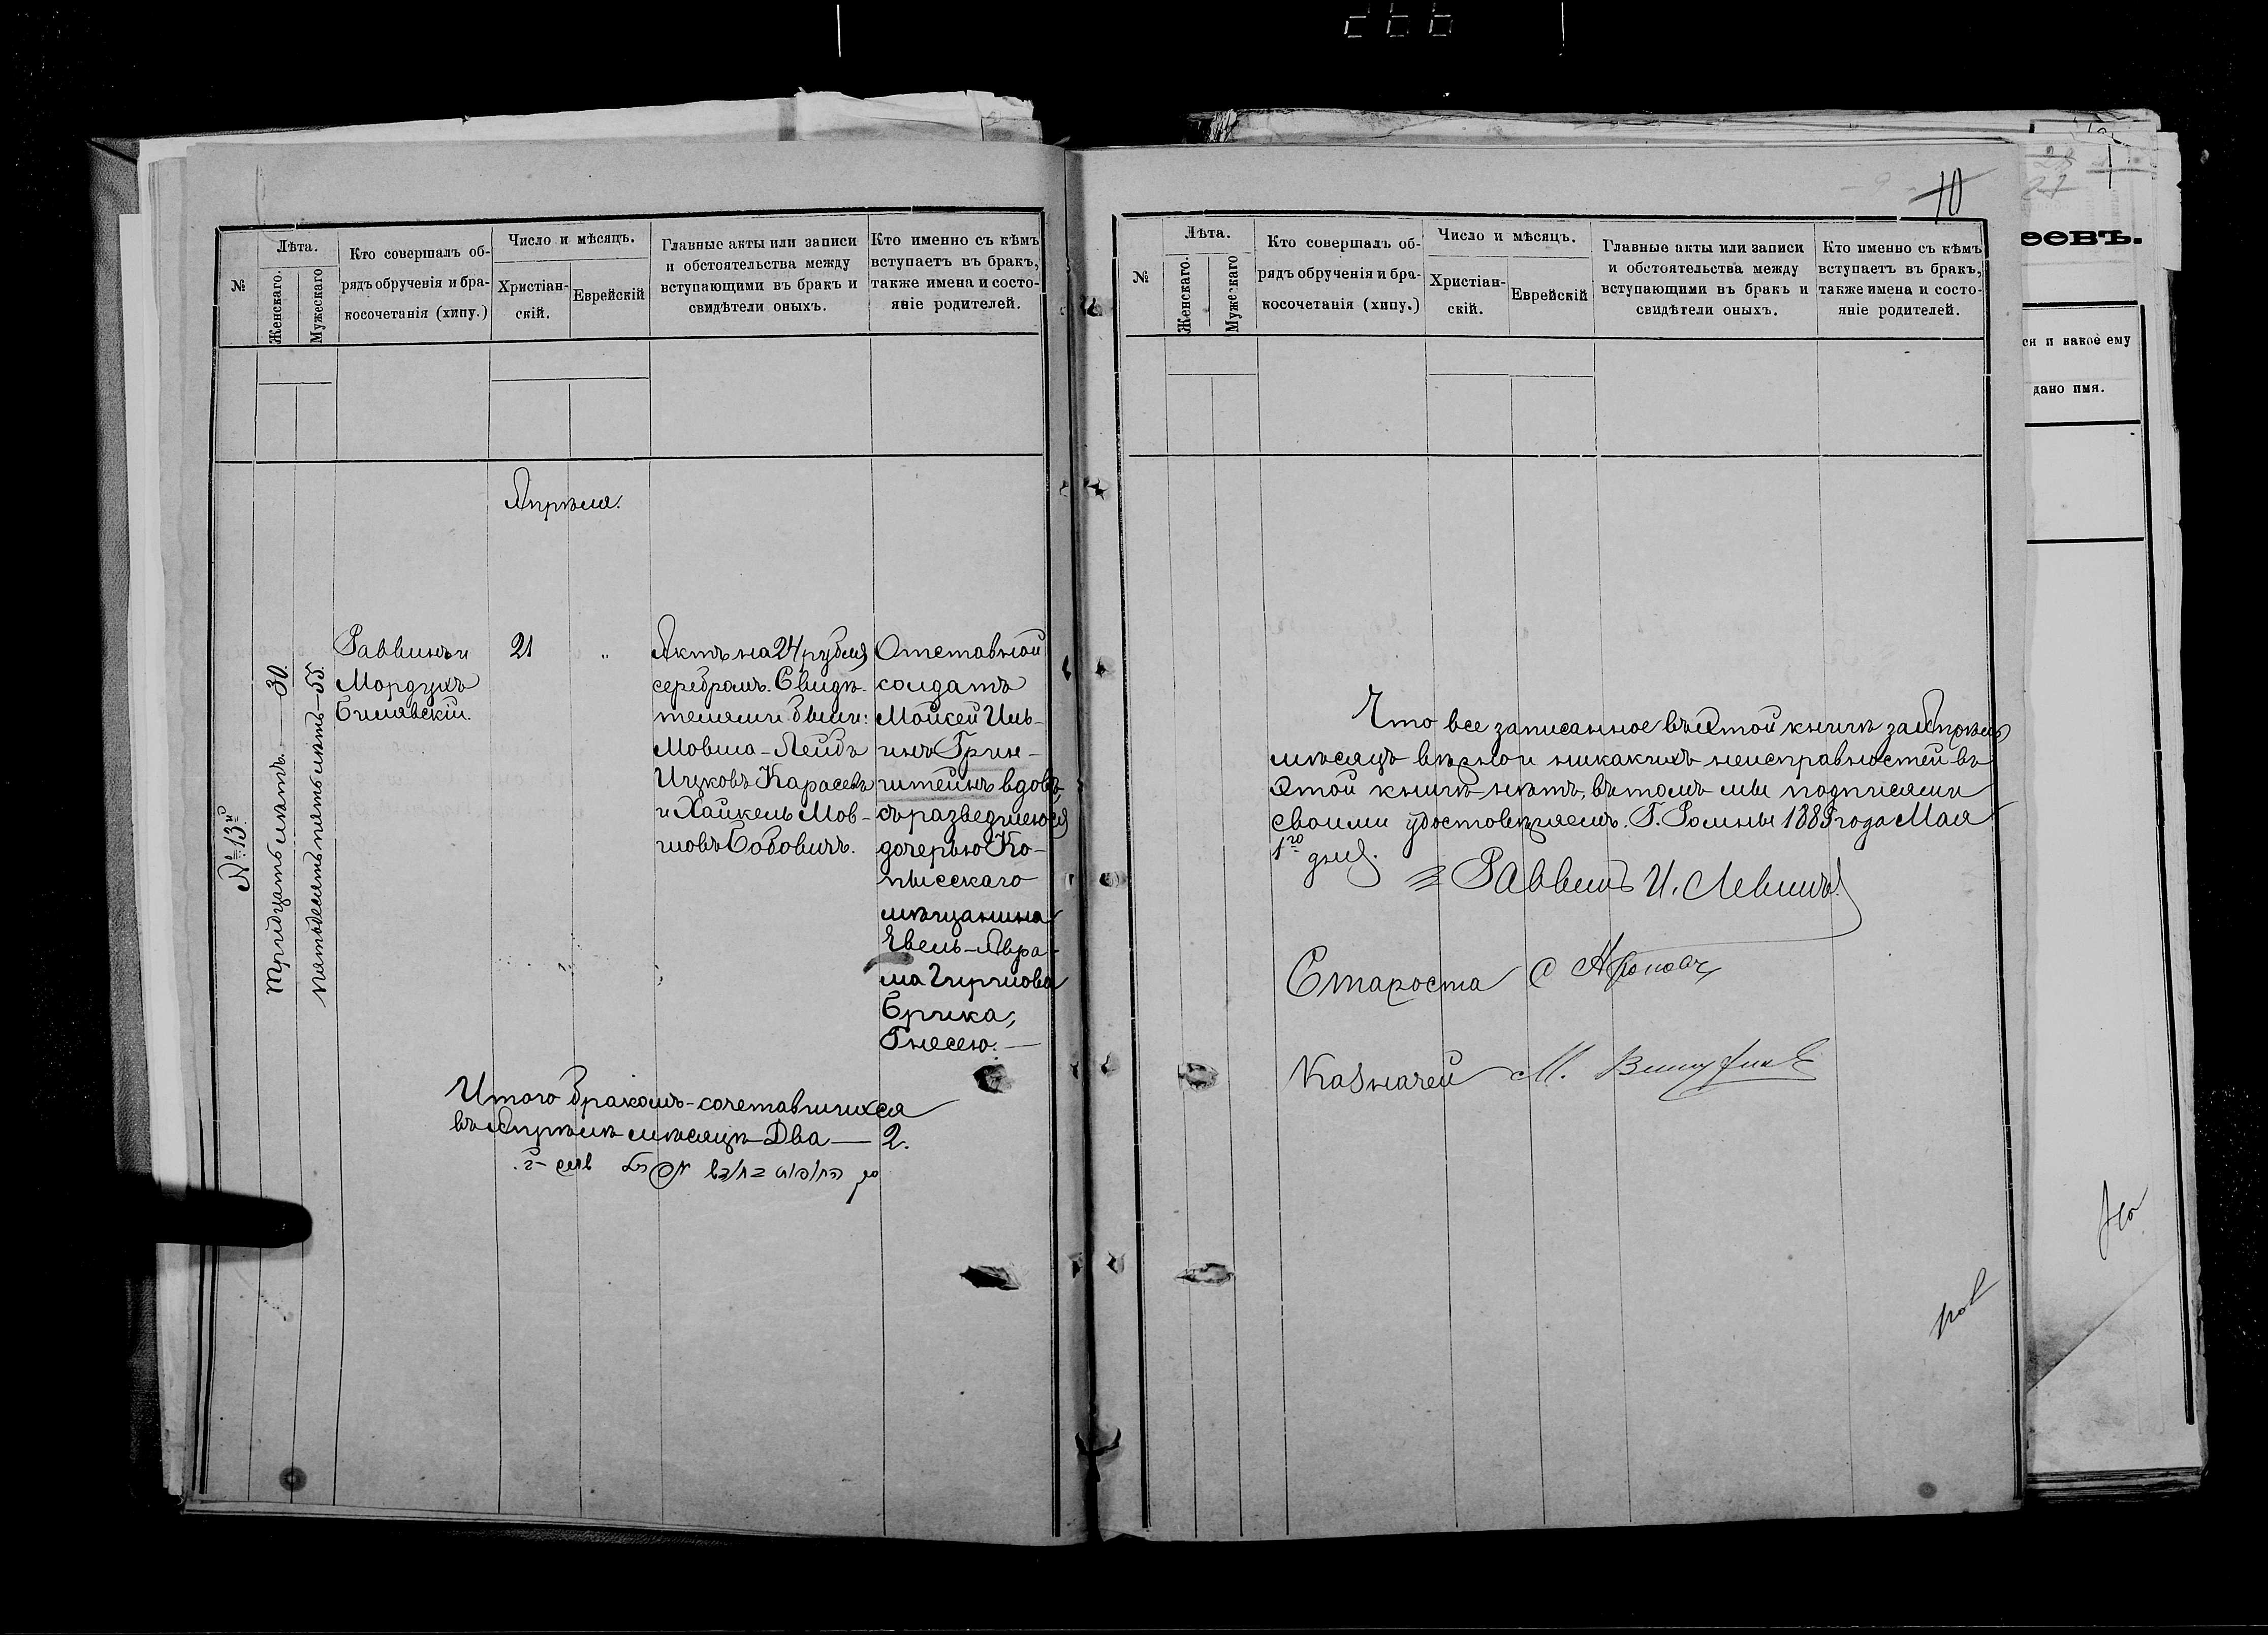 10
№
Лѣта.
Женскаго.
Мужескаго
Кто совершалъ об-
рядъ обрученія и бра-
косочетанія (хипу.)
Число и мѣсяцъ.
Христіан-
скій.
Еврейскій
Главные акты или записи
и обстоятельства между
вступающими въ бракъ и
свидѣтели оныхъ.
Кто именно съ кѣмъ
вступаетъ въ бракъ,
также имена и состо-
яніе родителей.
Апрѣля.
№ 13й
Тридцать лѣтъ — 30.
Пятьдесятъ пять лѣтъ — 55.
Раввинъ
Мордухъ
Билявскій.
21
„
Актъ на 24 рубля
серебромъ. Свидѣ-
телями были:
Мовша-Лейбъ
Ицковъ Карасевъ
и Хайкель Мов-
шовъ Бобовичъ.
Отставной
солдатъ
Мойсей
Грин-
штейнъ вдовъ,
съ разведшеюся
дочерью Ко-
пысскаго
мѣщанина
Евель-Абра-
ма Гиршова
Брика,
Гнесею. —
Итого бракомъ-сочетавшихся
въ Апрѣлѣ мѣсяцѣ Два — 2.
№
Лѣта.
Женскаго.
Мужескаго
Кто совершалъ об-
рядъ обрученія и бра-
косочетанія (хипу.)
Число и мѣсяцъ.
Христіан-
скій.
Еврейскій
Главные акты или записи
и обстоятельства между
вступающими въ бракъ и
свидѣтели оныхъ.
Кто именно съ кѣмъ
вступаетъ въ бракъ,
также имена и состо-
яніе родителей.
Что все записанное въ этой книгѣ за Апрѣль
мѣсяцъ вѣрно и никакихъ неисправностей въ
этой книгѣ нѣтъ, въ томъ мы подписями
своими удостовѣряемъ. Г. Ромны 1885 года Мая
1го дня.
Раввинъ И. Левинъ
Староста С
Казначей М.
ров
еевъ.
ся и какое ему
дано имя.